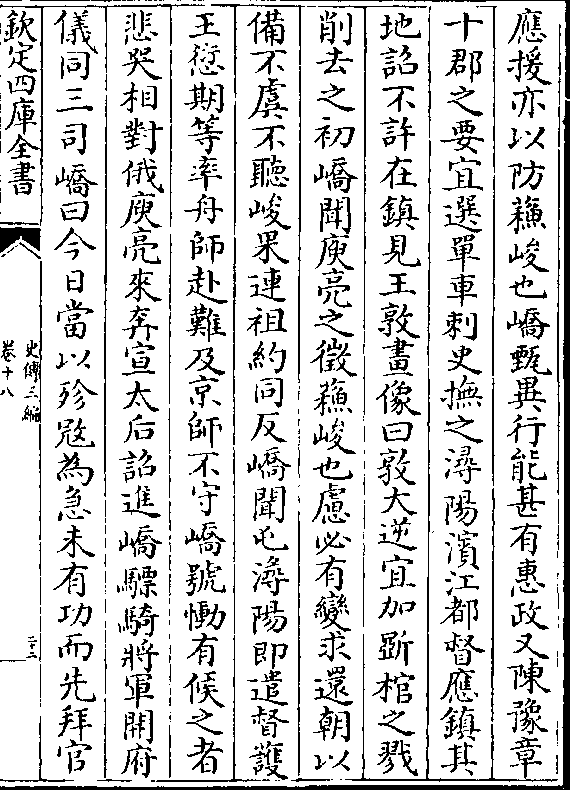 應援亦以防蘓峻也嶠甄異行能甚有惠政又陳豫章
十郡之要宜選單車刺史撫之潯陽濱江都督應鎮其
地詔不許在鎮見王敦畫像曰敦大逆宜加斵棺之戮
削去之初嶠聞庾亮之徵蘓峻也慮必有變求還朝以
備不虞不聽峻果連祖約同反嶠聞屯潯陽即遣督䕶
王愆期等率舟師赴難及京師不守嶠號慟有候之者
悲哭相對俄庾亮來奔宣太后詔進嶠驃騎將軍開府
儀同三司嶠曰今日當以殄宼為急未有功而先拜官
欽定四庫全書
史傳三編
卷十八
二十二